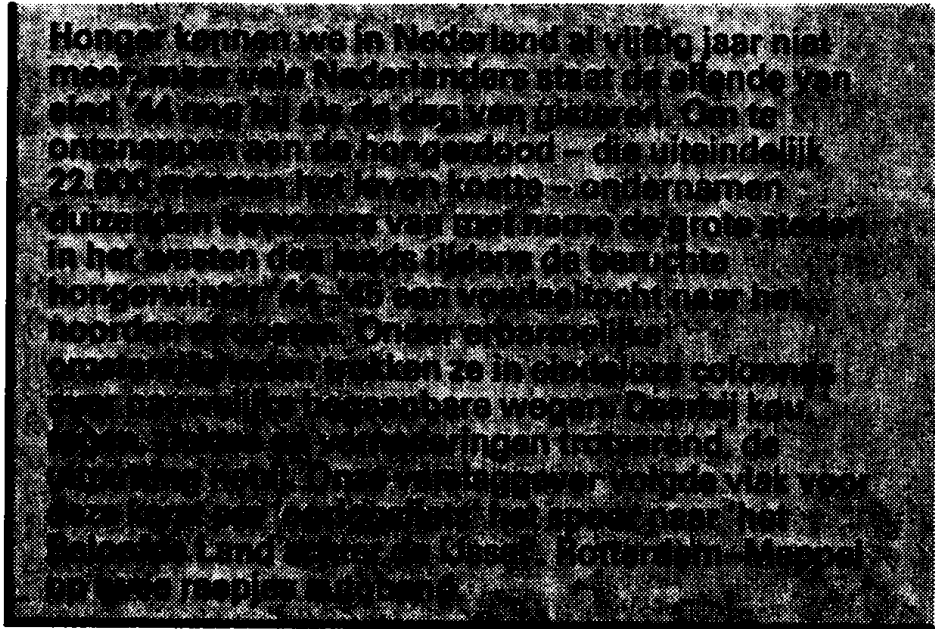 Honger kennen we in Nederland al vijftig jaar niet
meer, maar vele Nederlanders staat de ellende van
eind '44 nog bij als de dag van gisteren. Om te
ontsnappen aan de hongerdood – die uiteindelijk
22.000 mensen het leven kostte – ondernamen
duizenden bewoners van met name de grote steden
in het westen des lands tijdens de beruchte
hongerwinter '44-'45 een voedseltocht naar het
noorden en oosten. Onder erbarmelijke
omstandigheden trokken ze in eindeloze colonnes
over nauwelijks begaanbare wegen. Daarbij kou,
en vernederingen trotserend, de
nabij. Onze verslaggever volgde vlak voor
deze het spoor naar 'het
Beloofde Land achter de IJssel'. Rotterdam–Meppel
op twee reepjes